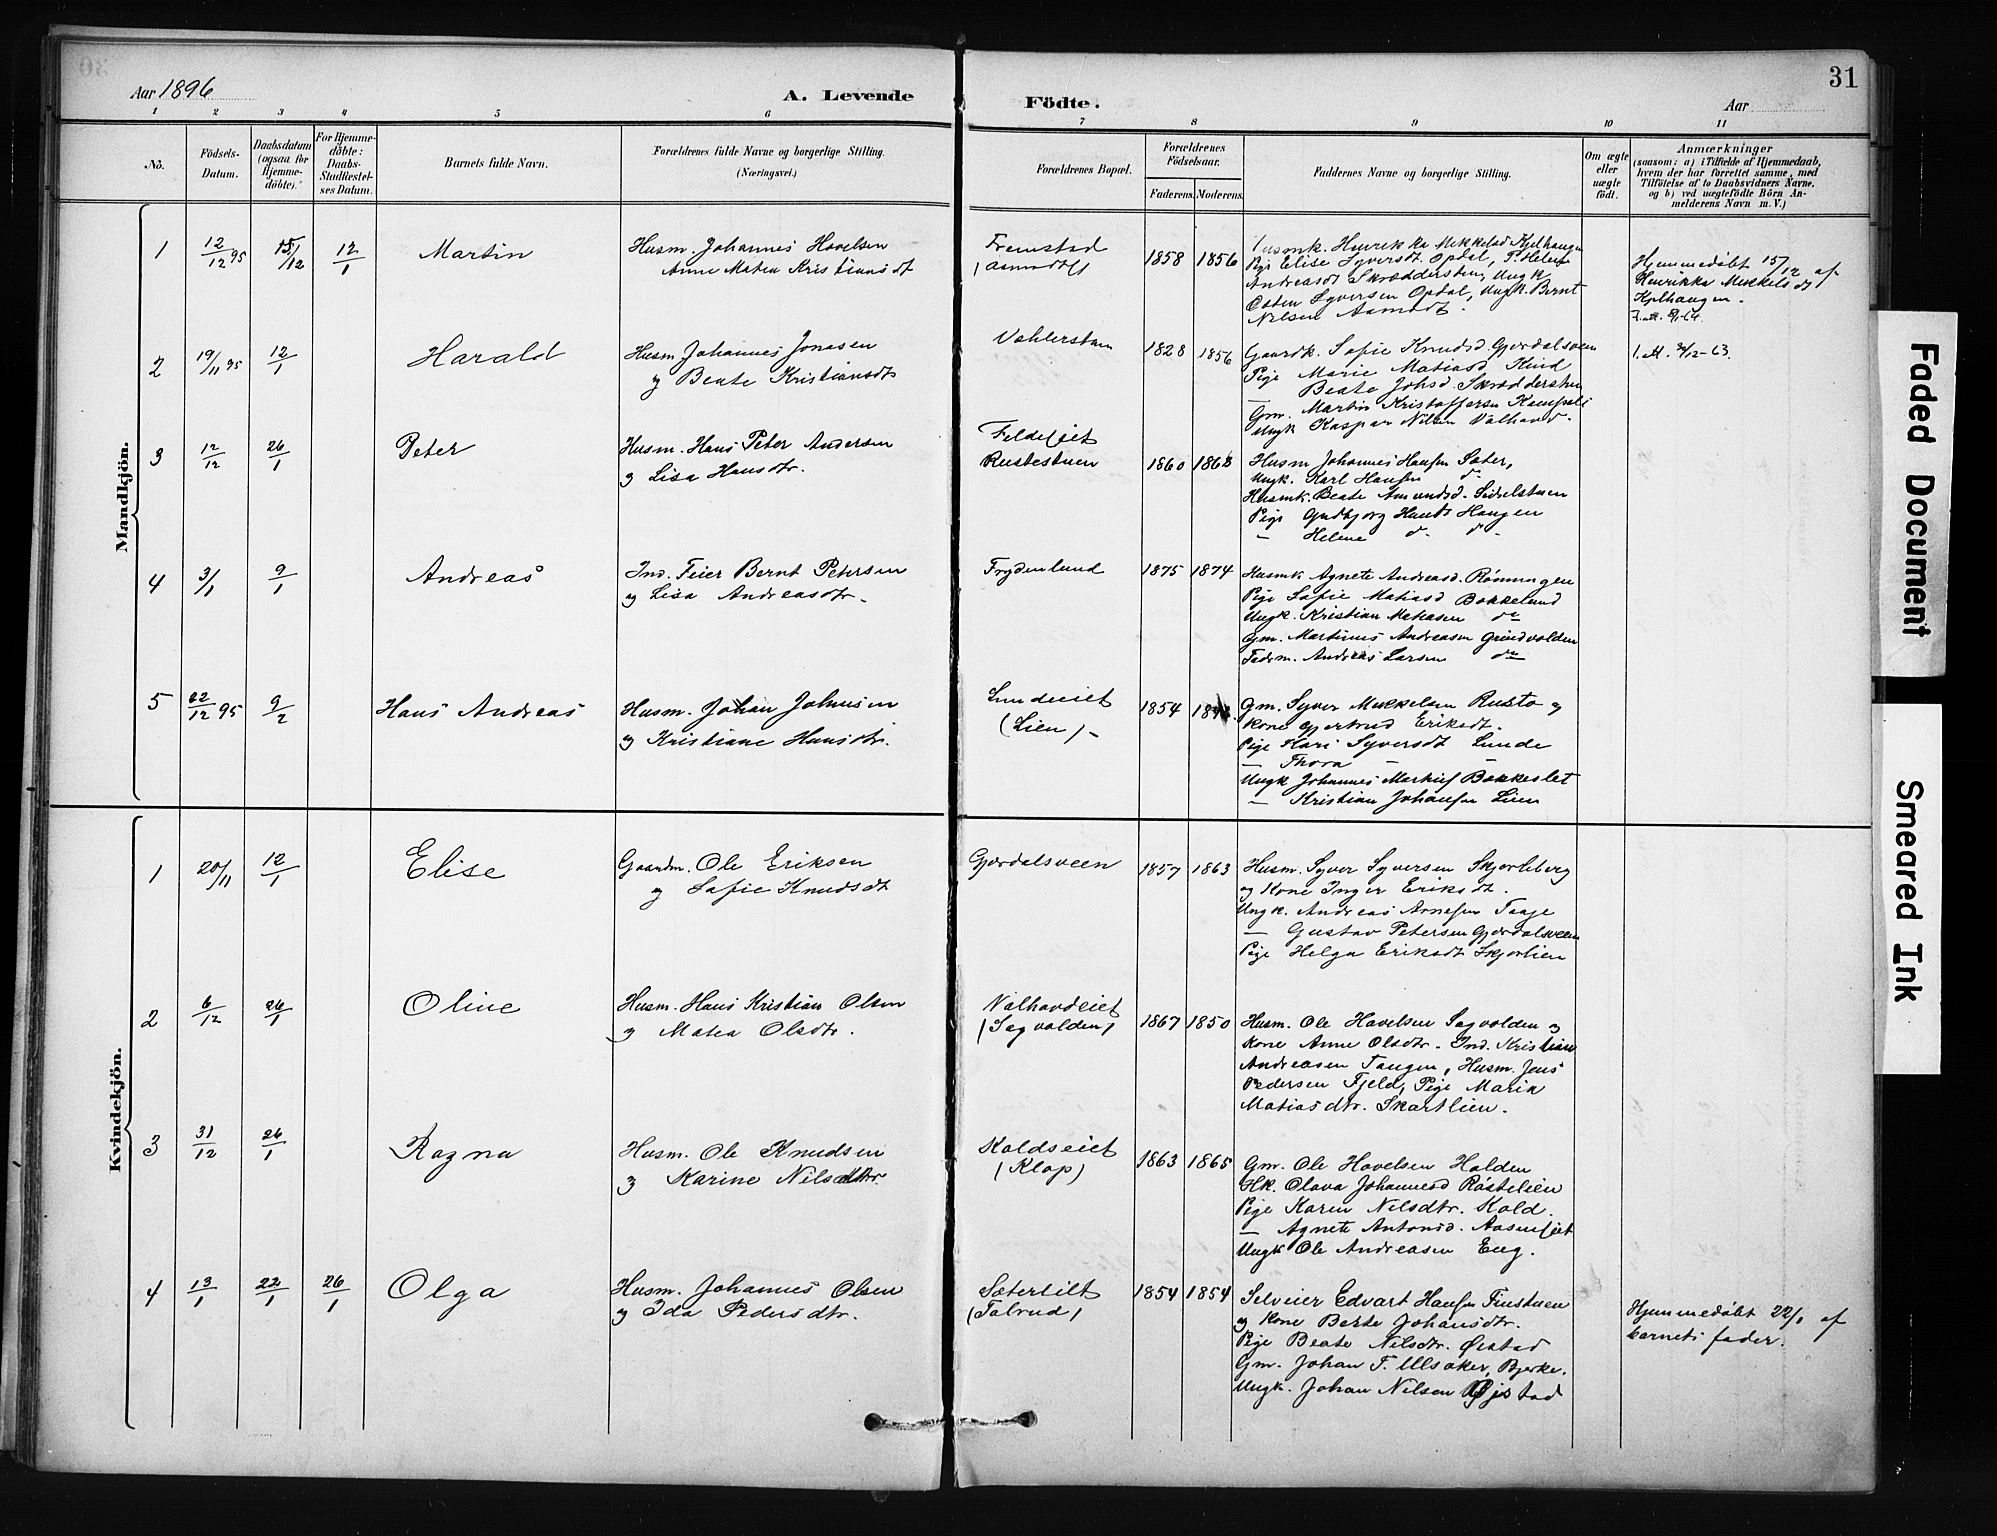 31
Aar 1896
A. Levende
Födte.
Aar
1 2 3 4 5 6 7 8 9 10 11
No.
Födsels-
Datum.
Daabsdatum
(ogsaa for
Hjemme-
döbte).
For Hjemme-
döbte:
Daabs-
Stadfæstel-
ses Datum.
Barnets fulde Navn.
Forældrenes fulde Navne og borgerlige Stilling.
(Næringsvei.)
Forældrenes Bopæl.
Forældrenes
Födselsaar.
Faderens.
Moderens.
Faddernes Navne og borgerlige Stilling.
Om ægte
eller
uægte
födt.
Anmærkninger
(saasom: a) i Tilfælde af Hjemmedaab,
hvem der har forrettet samme, med
Tilföielse af to Daabsvidners Navne,
og b) ved uægtefödte Börn An-
melderens Navn m. V.)
Mandkjön.
1 12/12 95 15/12 12/1 Martin
Husm. Johannes Hovelsen
Anne Matea Kristiansdt
Fremstad
1858 1856
Henrikka Mikkelsd Kjelhaugen
Pige Elise Syversdt Opdal, P. Helene
Andreasdt Skræddersten, Ungk
Syversen Opdal, Ungk. Bernt
Nilsen
Hjemmedöbt 15/12 af
Henrikka Mikkelsdt
Kjelhaugen.
2 19/11 95 12/1 Harald
Husm Johannes Jonasen
og Beate Kristiansdt
1828 1856
Gaardk. Sofie Knudsd. Gjørdalsveen
Pige Marie Matiasd Kind
Beate Johsd. Skræddersten
Gm. Martin Kristoffersen
Ungk Kaspar Nilsen Valhovd.
3 12/12 26/1 Peter
Husm. Hans Peter Andersen
og Lisa Hansdtr.
Rustestuen
1860 1868
Husm Johannes Hansen Sæter,
Ungk. Karl Hansen d.
Husmk. Beate Amundsd. Sidselstuen
Pige Gudbjørg Hansdt Haugen
— Helene d. d.
4 3/1 9/1 Andreas
Ind. Feier Bernt Petersen
og Lisa Andreasdtr.
Frydenlund
1875 1874
Husmk Agnete Andreasd. Rønningen
Pige Sofie Matiasd Bakkelund
Ungk. Kristian Matiasen do
Gm. Martinus Andreasen Grindvolden
Andreas Larsen do
5 22/12 95 9/2 Hans Andreas
Husm. Johan Johnsen
og Kristiane Hansdtr.
Lundeeiet
(Lien) -
1854
Gm. Syver Mikkelsen Rusto og
Kone Gjertrud Eriksdt.
Pige Kari Syversdt Lunde
— Thora — —
Ungk Johannes Bakkeslet
— Kristian Johansen Lien
Kvindekjön.
1 20/11 12/1 Elise
Gaardm. Ole Eriksen
og Sofie Knudsdt
Gjørdalsveen
1857 1863
Husm. Syver Syversen Skjørleberg
og Kone Inger Eriksdt.
Ungk. Andreas Arnesen Taaje
— Gustav Petersen Gjørdalsveen
Pige Helga Eriksdt Skjørlien
2 6/12 26/1 Oline
Husm. Hans Kristian Olsen
og Matea Olsdtr.
Valhovdeiet
(Sagvolden)
1867 1850
Husm. Ole Hovelsen Sagvolden og
Kone Anne Olsdtr. Ind. Kristian
Andreasen Tangen, Husm. Jens
Pedersen Fjeld, Pige Maria
Matiasdtr. Skartlien.
3 31/12 26/1 Ragna
Husm. Ole Knudsen
og Karine Nilsdtr.
Koldseiet
(Klop)
1863 1865
Gm. Ole Hovelsen Holden
Hk. Olava Johannesd Røstelien
Pige Karen Nilsdtr. Kold.
— Agnete Antonsd. Aaseneiet
Ungk Ole Andreasen Eng.
4 13/1 22/1 26/1 Olga
Husm. Johannes Olsen
og Ida Pedersdtr.
(Tolrud)
1854 1854
Selveier Edvart Hansen Finstuen
og Kone Berte Johansdtr.
Pige Beate Nilsdtr. Øistad
Gm. Johan F. Ulsaker, Bjerke.
Ungk. Johan Nilsen Øjstad
Hjemmedöbt 22/1 af
barnets fader.
Faded Document
Smeared Ink